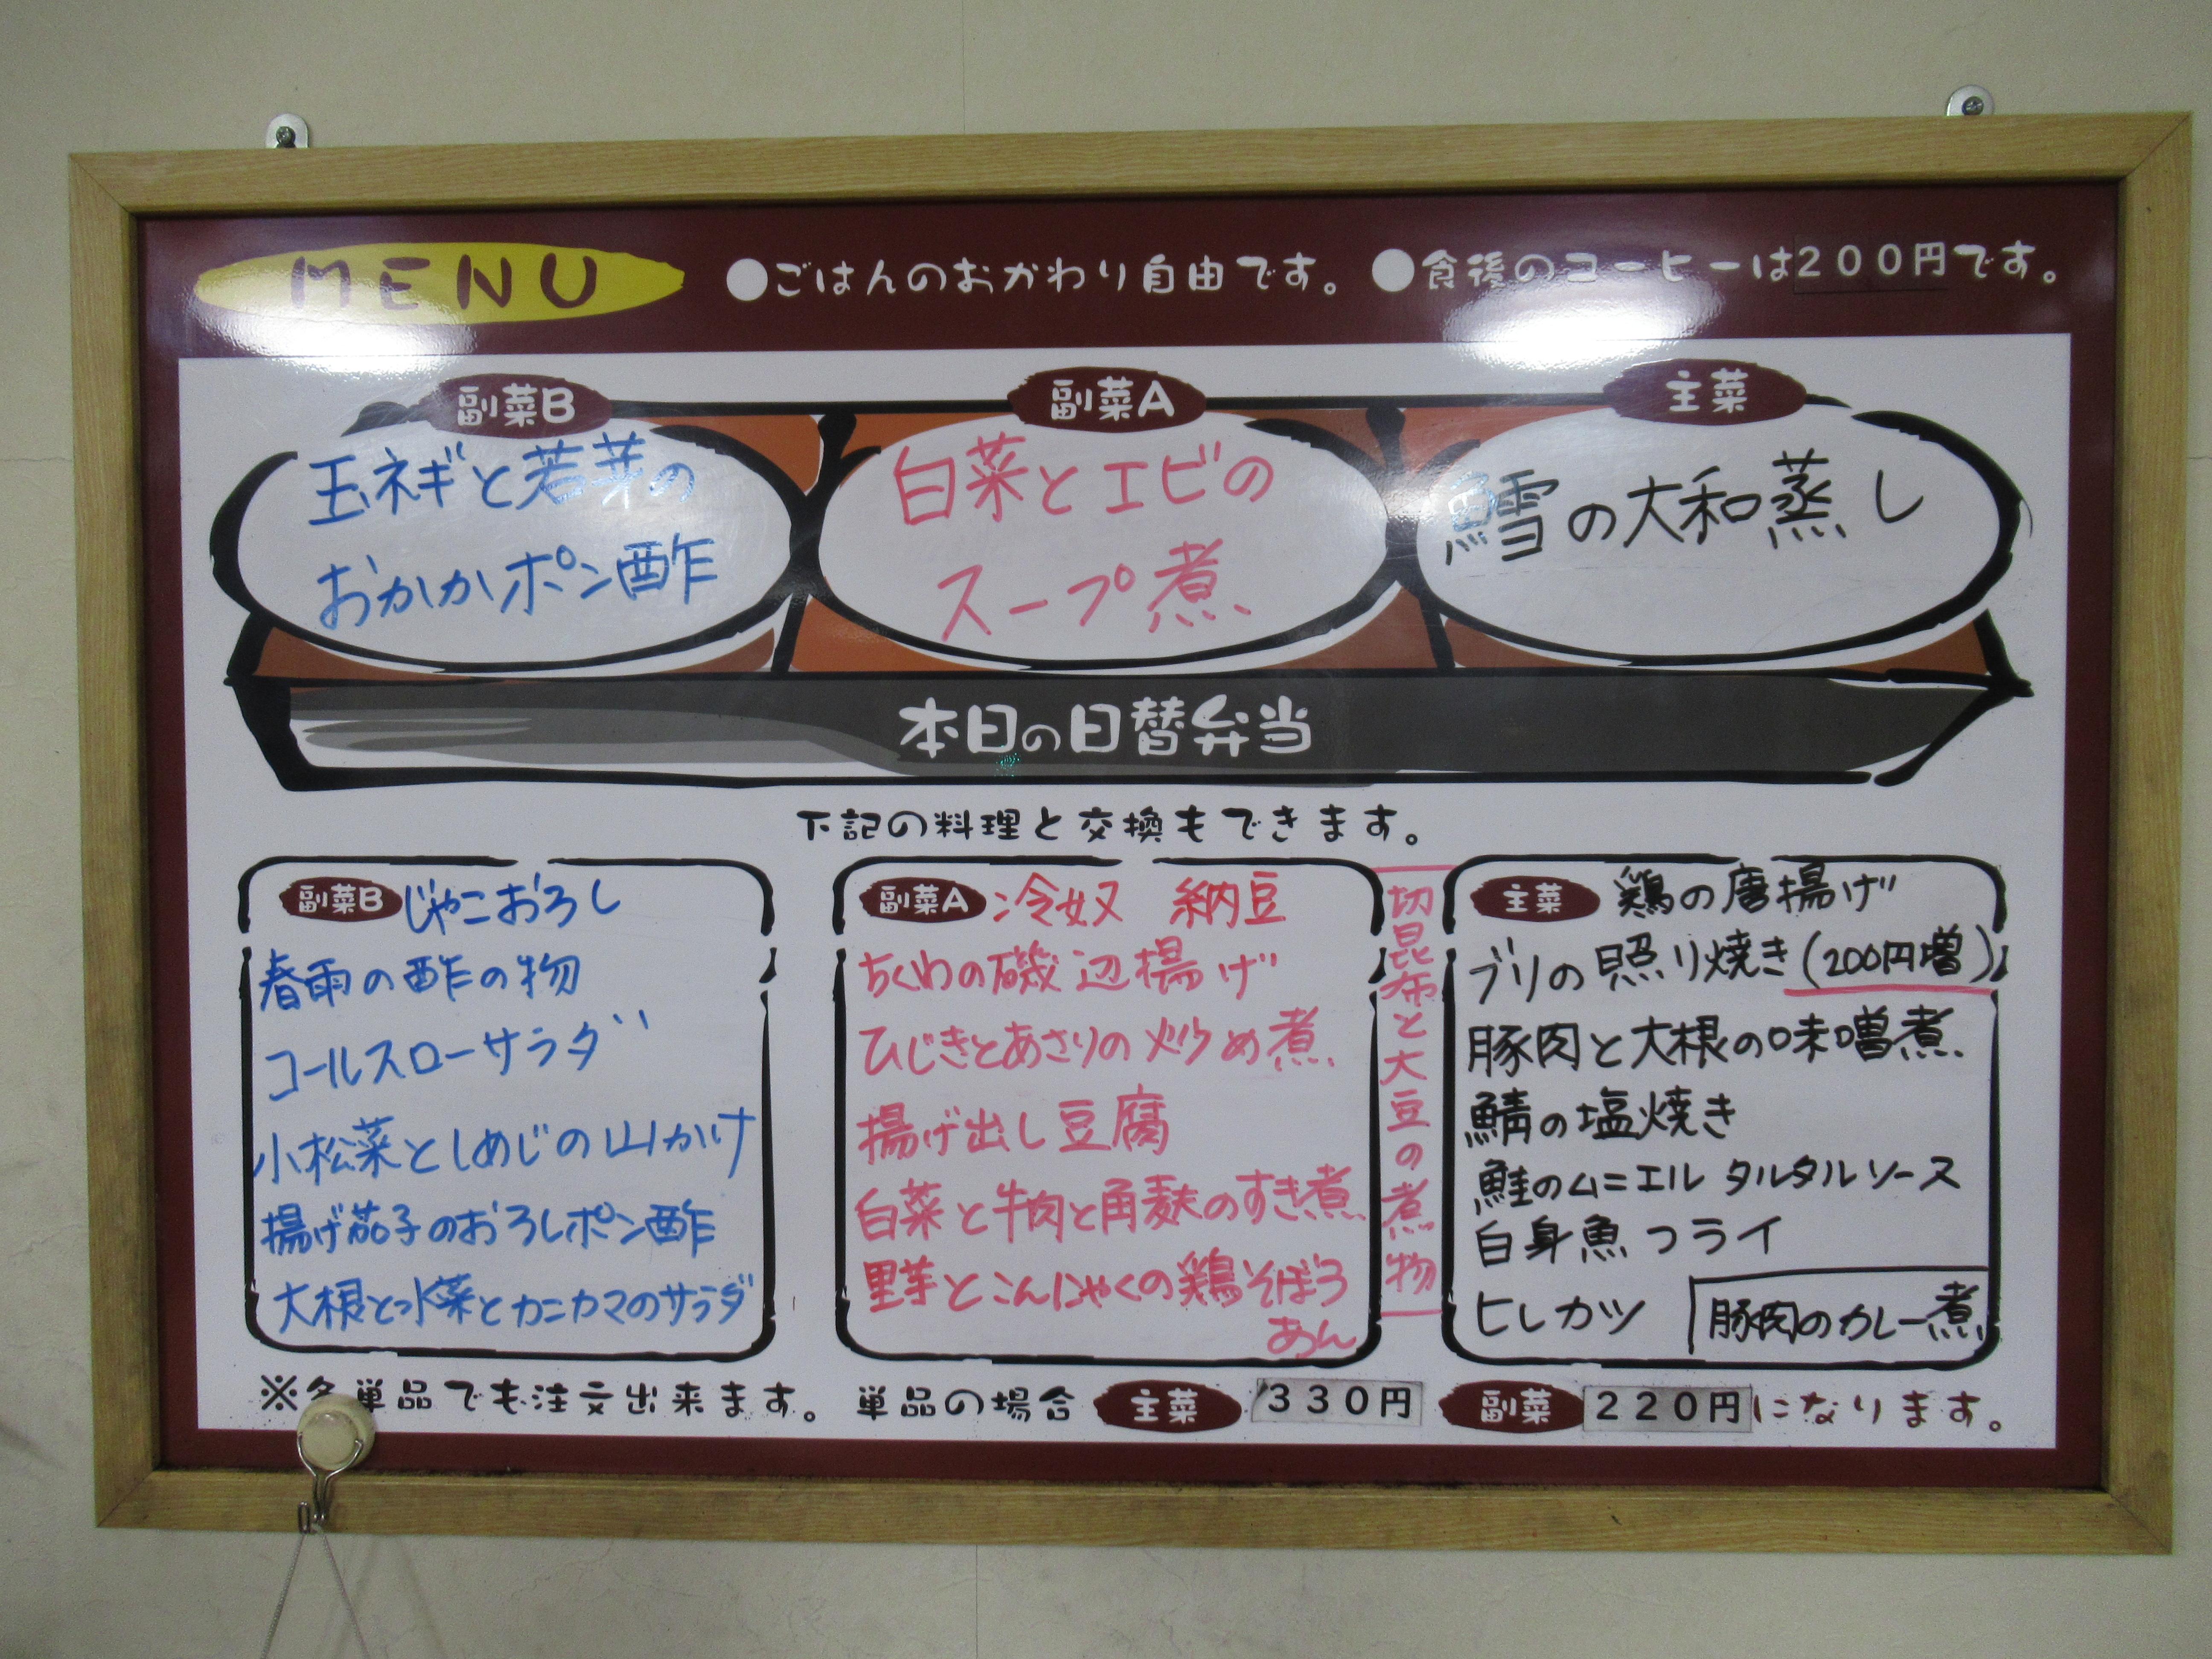 MENU
●ごはんのおかわり自由です。 ●食後のコーヒーは200円です。
副菜B
玉ネギと若菜の
おかかポン酢
副菜A
白菜とエビの
スープ煮
主菜
鱈の大和蒸し
本日の日替弁当
下記の料理と交換もできます。
副菜B じゃこおろし
春雨の酢の物
コールスローサラダ
小松菜としめじの山かけ
揚げ茄子のおろしポン酢
大根と水菜とカニカマのサラダ
副菜A 冷奴 納豆
ちくわの磯辺揚げ
ひじきとあさりの炒め煮
揚げ出し豆腐
白菜と牛肉と角麩のすき煮
里芋とこんにゃくの鶏そぼろ
あん
切昆布と大豆の煮物
主菜 鶏の唐揚げ
ブリの照り焼き(200円増)
豚肉と大根の味噌煮
鯖の塩焼き
鮭のムニエル タルタルソース
白身魚フライ
ヒレカツ 豚肉のカレー煮
※各単品でも注文出来ます。 単品の場合 主菜 330円 副菜 220円になります。